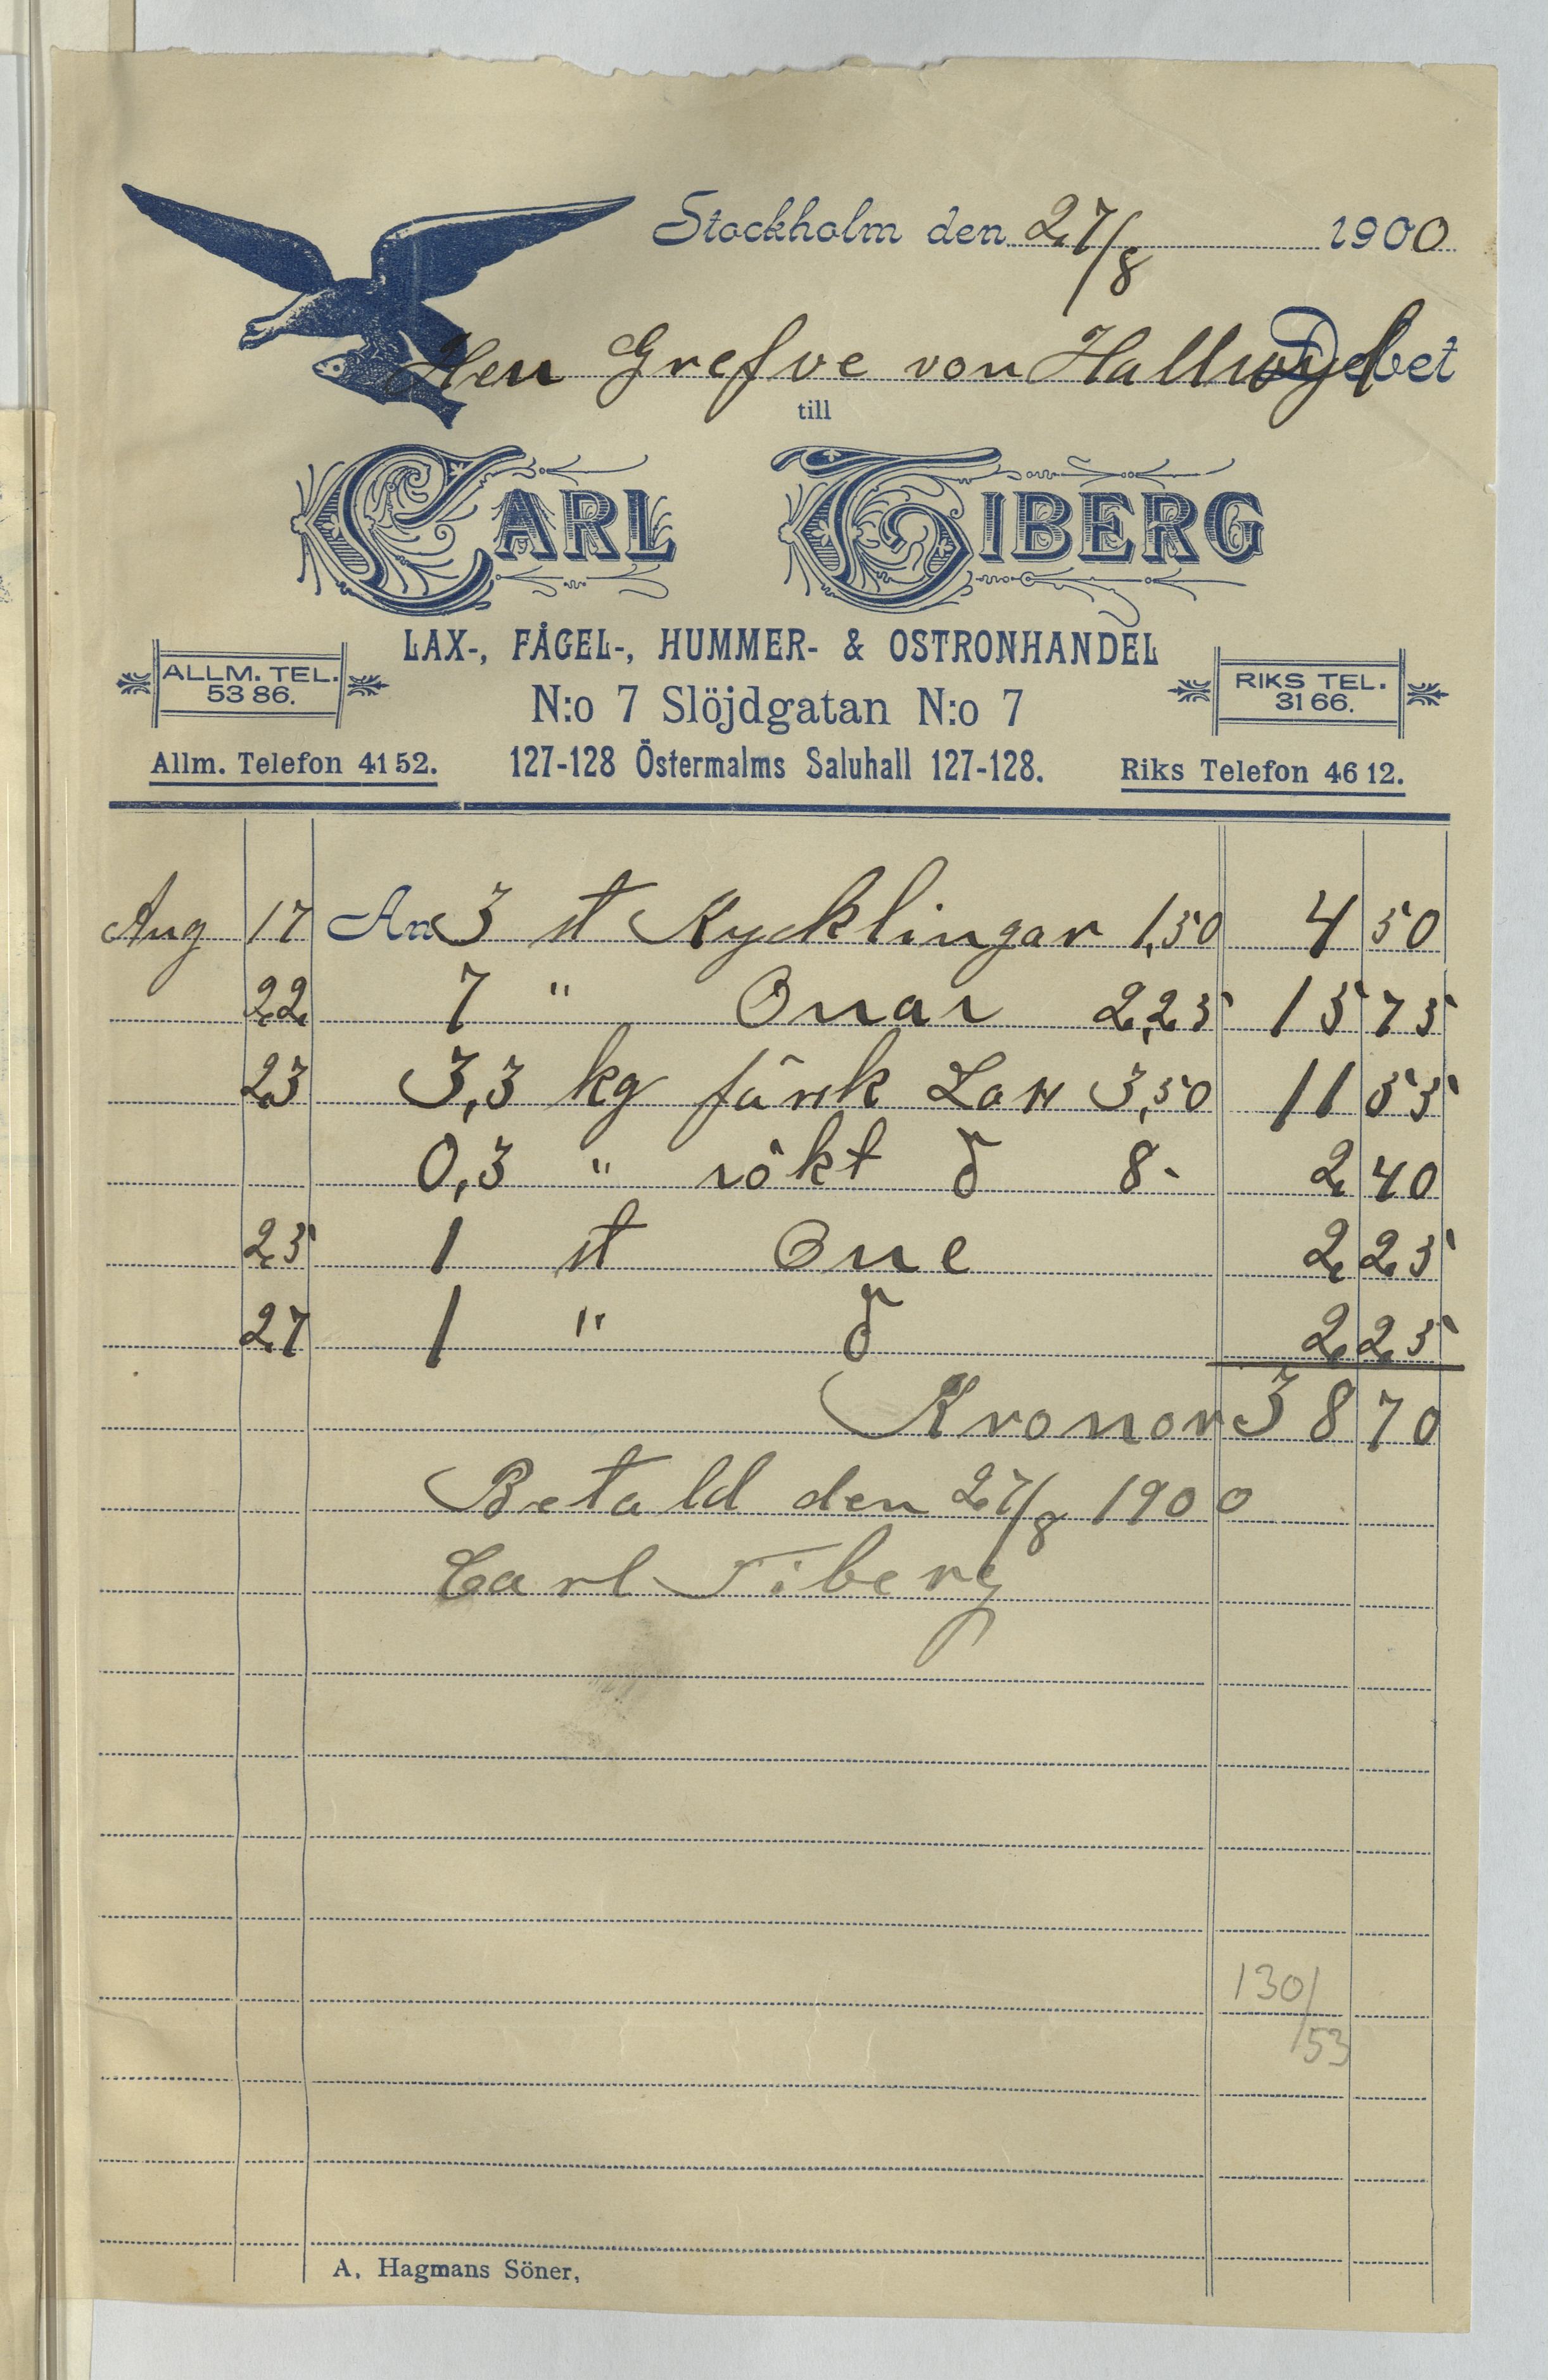 Stockholm den 27/8 1900
Herr Grefve von Hallwyl Debet
till
CARL TIBERG
LAX-, FÅGEL-, HUMMER- & OSTRONHANDEL
ALLM. TEL. 53 86.
N:o 7 Slöjdgatan N:o 7
RIKS TEL. 31 66.
Allm. Telefon 41 52.
127-128 Östermalms Saluhall 127-128.
Riks Telefon 46 12.
Aug 17 An 3 st Kycklingar 1,50 4 50
22 7 " Orrar 2,25 15 75
23 3,3 kg färsk Lax 3,50 11 55
0,3 " rökt d 8- 2 40
25 1 st Orre 2 25
27 1 " d 2 25
Kronor 38 70
Betald den 27/8 1900
Carl Tiberg
130/53
A. Hagmans Söner,